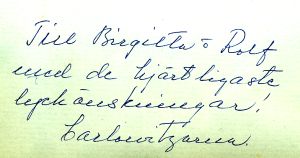 Till Birgitta o Rolf
med de hjärtligaste
lyckönskningar!
Carlowitzarna.